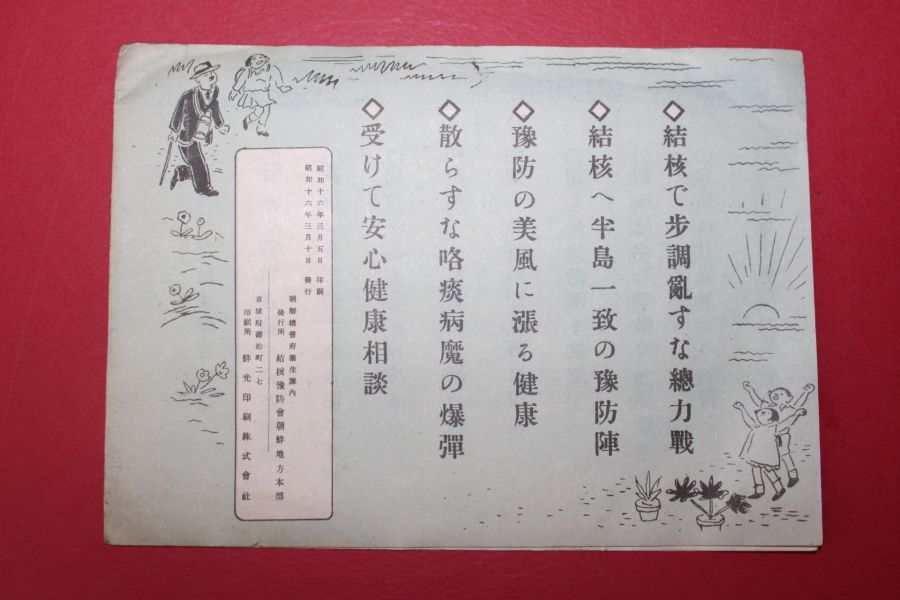 ◇結核で歩調亂すな總力戰
◇結核へ半島一致の豫防陣
◇豫防の美風に漲る健康
◇散らすな喀痰病魔の爆彈
◇受けて安心健康相談
昭和十六年三月五日 印刷
昭和十六年三月十日 發行
朝鮮總督府衞生課內
發行所 結核豫防會朝鮮地方本部
京城府壽松町二七
印刷所 鮮光印刷株式會社